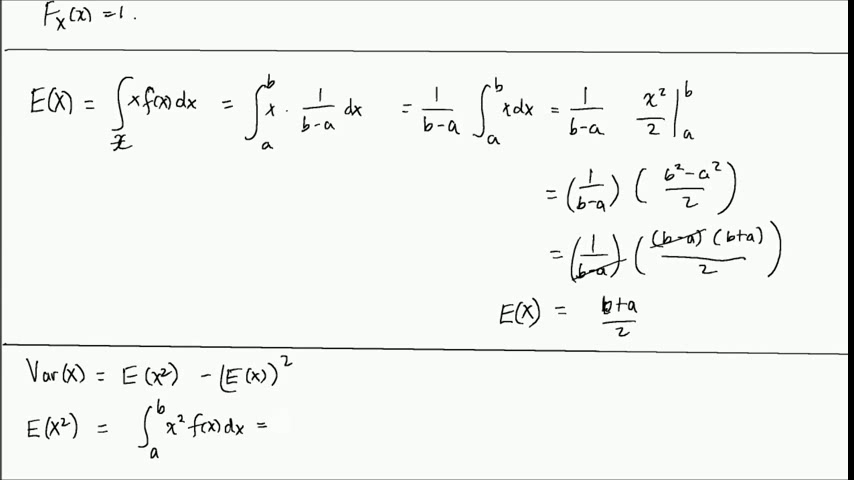 F_X(x) = 1.
E(X) = ∫_𝒳 x f(x) dx = ∫_a^b x · 1/(b-a) dx = 1/(b-a) ∫_a^b x dx = 1/(b-a) x²/2 |_a^b
= (1/(b-a)) ((b²-a²)/2)
= (1/(b-a)) ((b-a)(b+a)/2)
E(X) = (b+a)/2
Var(X) = E(X²) - (E(X))²
E(X²) = ∫_a^b x² f(x) dx =